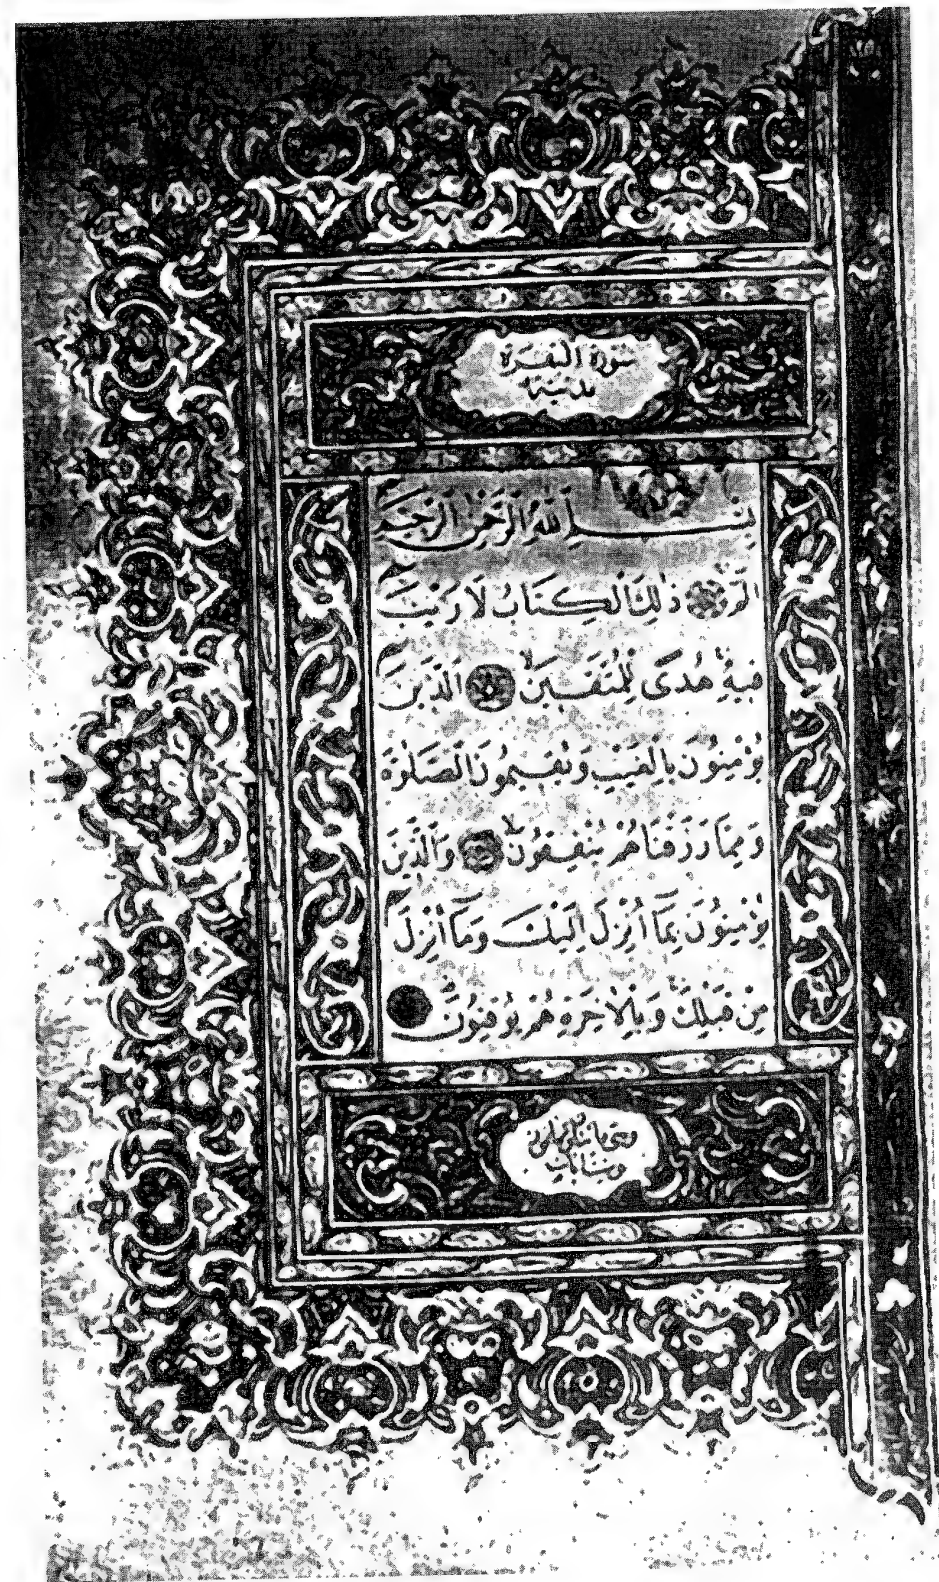 سورة البقرة
مدنية
بِسْمِ اللّٰهِ الرَّحْمٰنِ الرَّحِيمِ
الٓمٓ ذٰلِكَ الْكِتَابُ لَا رَيْبَۚ
فِيهِۚ هُدًى لِلْمُتَّقِينَۙ الَّذِينَ
يُؤْمِنُونَ بِالْغَيْبِ وَيُقِيمُونَ الصَّلٰوةَ
وَمِمَّا رَزَقْنَاهُمْ يُنْفِقُونَۙ وَالَّذِينَ
يُؤْمِنُونَ بِمَٓا اُنْزِلَ اِلَيْكَ وَمَٓا اُنْزِلَ
مِنْ قَبْلِكَۚ وَبِالْاٰخِرَةِ هُمْ يُوقِنُونَۜ
وهي مائتان وثمانون